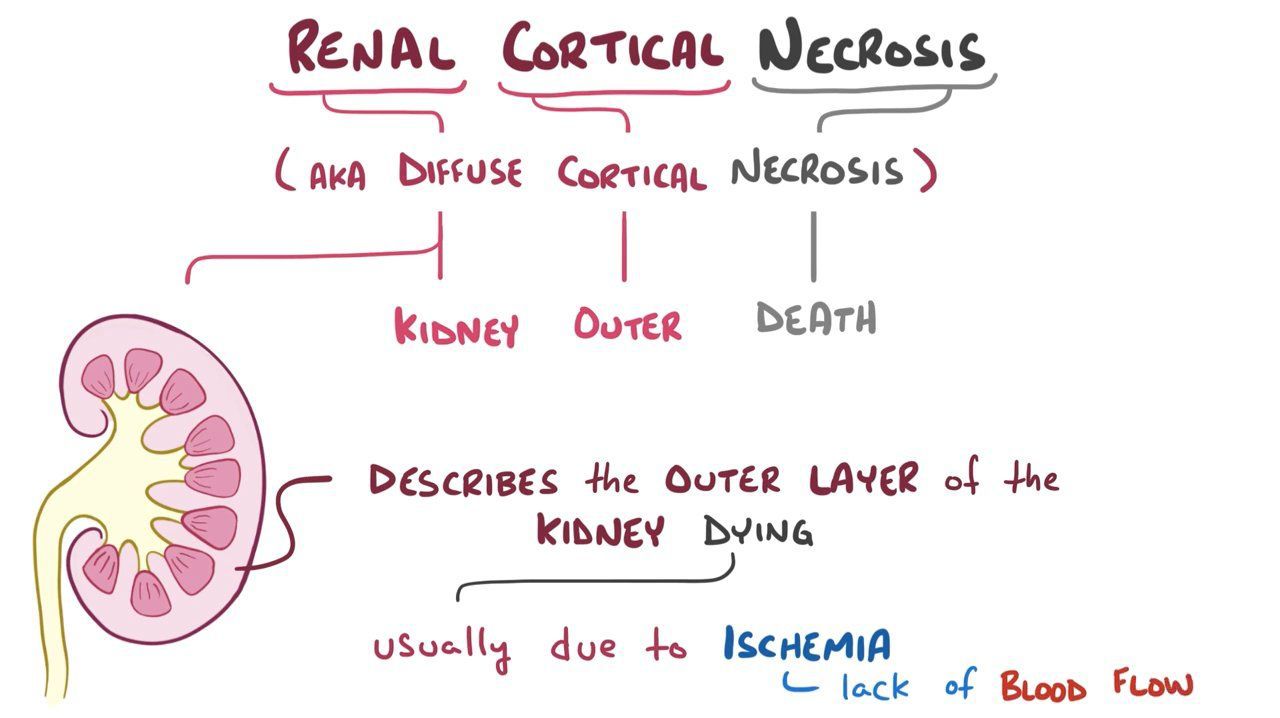 RENAL CORTICAL NECROSIS
(AKA DIFFUSE CORTICAL NECROSIS)
KIDNEY OUTER DEATH
DESCRIBES the OUTER LAYER of the
KIDNEY DYING
usually due to ISCHEMIA
lack of BLOOD FLOW